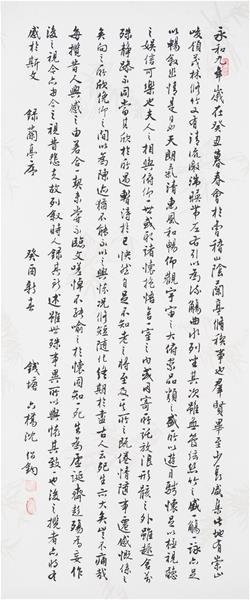 永和九年歲在癸丑暮春會于會稽山陰蘭亭脩禊事也群賢畢至少長咸集此地有崇山
峻領茂林脩竹又有清流激湍暎帶左右引以為流觴曲水列坐其次雖無絲竹管弦之盛一觴一詠亦足
以暢敘幽情是日也天朗氣清惠風和暢仰觀宇宙之大俯察品類之盛所以遊目騁懷足以極視聽
之娛信可樂也夫人之相與俯仰一世或取諸懷抱悟言一室之內或因寄所託放浪形骸之外雖趣舍萬
殊靜躁不同當其欣於所遇暫得於己快然自足不知老之將至及其所之既倦情隨事遷感慨係之
矣向之所欣俛仰之間以為陳迹猶不能不以之興懷況脩短隨化終期於盡古人云死生亦大矣豈不痛哉
每攬昔人興感之由若合一契未嘗不臨文嗟悼不能喻之於懷固知一死生為虛誕齊彭殤為妄作
後之視今亦由今之視昔悲夫故列敘時人錄其所述雖世殊事異所以興懷其致一也後之攬者亦將有
感於斯文 錄蘭亭序 癸酉新春 錢塘 沈